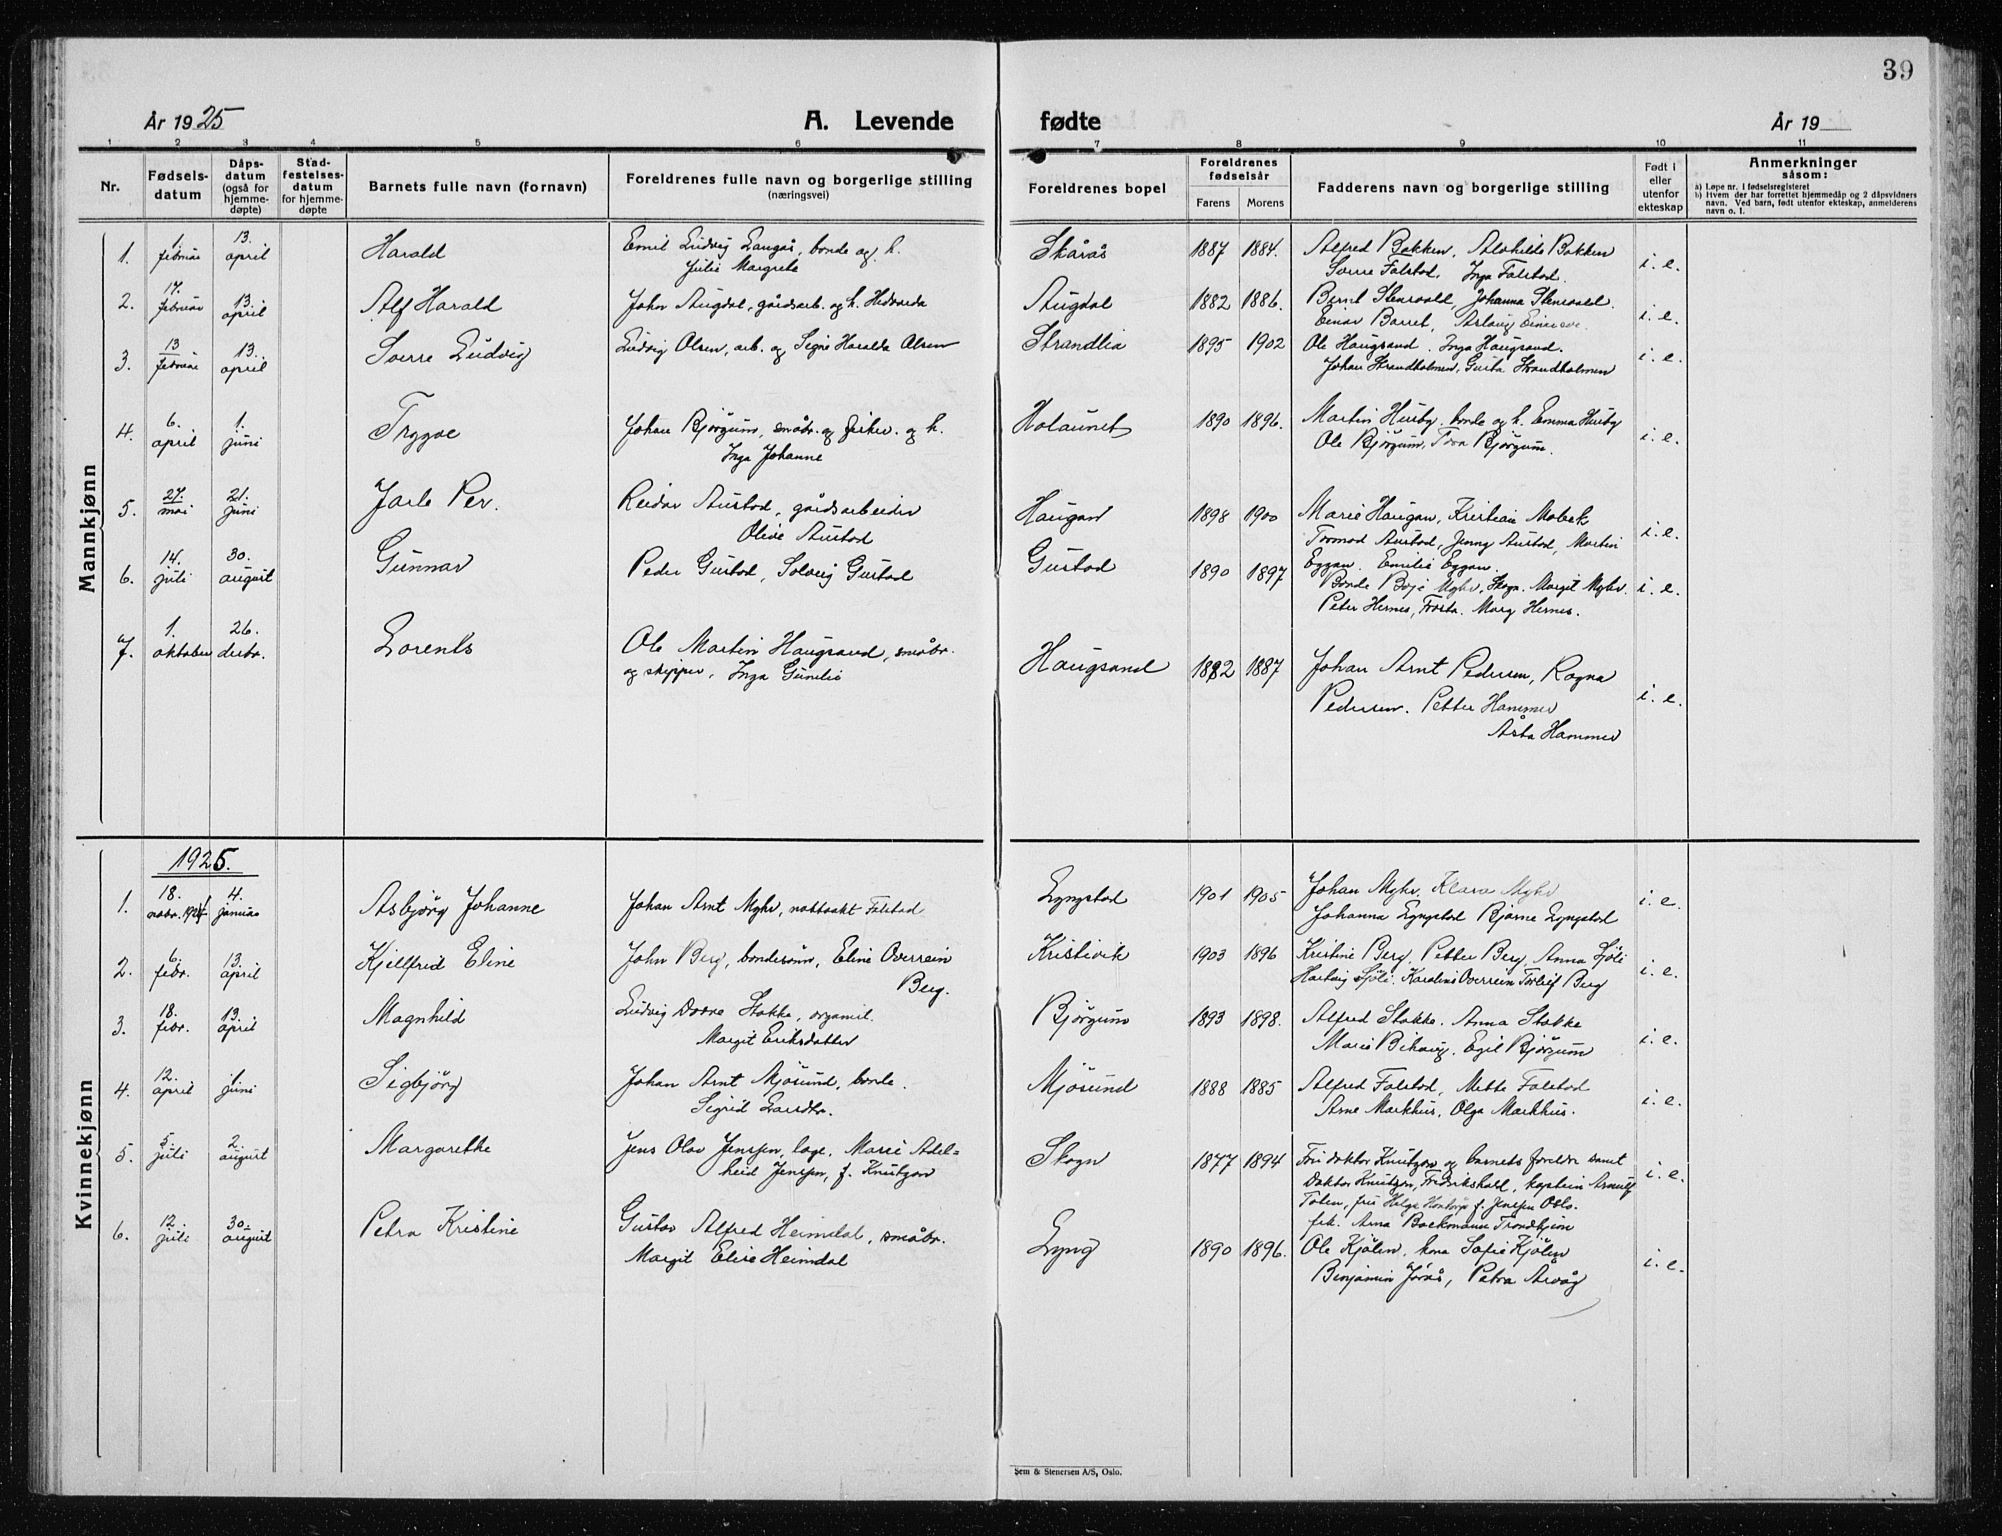 39
År 1925
A. Levende
fødte
År 19
1 2 3 4 5 6 7 8 9 10 11
Nr.
Fødsels-
datum
Dåps-
datum
(også for
hjemme-
døpte)
Stad-
festelses-
datum
for hjemme-
døpte
Barnets fulle navn (fornavn)
Foreldrenes fulle navn og borgerlige stilling
(næringsvei)
Foreldrenes bopel
Foreldrenes
fødselsår
Farens Morens
Fadderens navn og borgerlige stilling
Født i
eller
utenfor
ekteskap
Anmerkninger
såsom:
a) Løpe nr. i fødselsregisteret
b) Hvem der har forrettet hjemmedåp og 2 dåpsvidners
navn. Ved barn, født utenfor ekteskap, anmelderens
navn o. l.
Mannkjønn
1. 1. februar 13. april Harald Emil Ludvig Langås, bonde og h. Skårås 1887 1884. Alfred Bakken, Alvhilde Bakken i. e.
Julie Margrete Sverre Falstad, Inga Falstad.
2. 17. februar 13. april Alf Harald John Augdal, gårdsarb. og h. Hedvarda Augdal 1882 1886. Bernt Stensvald, Johanna Stensvald. i. e.
Einar Barret, Aslaug
3. 13 februar 13. april Sverre Ludvig Ludvig Olsen, arb. og Signe Haralda Olsen Strandlia 1895 1902 Ole Haugsand. Inga Haugsand. i. e.
Johan Strandholmen, Gusta Strandholmen
4. 6. april 1. juni Trygve Johan Bjørgum, småbr. og fisker. og h. Holaunet 1890 1896. Martin Husby, bonde og h. Emma Husby i. e.
Inga Johanne Ole Bjørgum, Tora Bjørgum.
5. 27. mai 21. juni Jarle Per. Reidar Austad, gårdsarbeider Haugan 1898 1900 Marie Haugan, Kristian Mobek i. e.
Olive Austad Tormod Austad, Jenny Austad, Martin
Eggan. Emilie Eggan.
6. 14. juli 30. august Gunnar Peder Gustad, Solveig Gustad Gustad 1890 1897 Bonde Boje Myhr, Skogn. Margit Myhr. i. e.
Peter Hernes, Frosta. Mary Hernes.
7. 1. oktober 26. decbr. Lorents Ole Martin Haugsand, småbr. Haugsand 1882 1887 Johan Arnt Pedersen, Ragna i. e.
og skipper, Inga Gunelie Pedersen. Petter Hammer
Åsta Hammer
Kvinnekjønn
1925.
1. 18. novbr. 1924 4. januar Asbjørg Johanne Johan Arnt Myhr, nattvakt Falstad Lyngstad 1901 1905 Johan Myhr, Klara Myhr i. e.
Johanna Lyngstad Bjarne Lyngstad
2. 6. febr. 13. april Kjellfrid Eline John Berg, bondesønn, Eline Overrein Kristivik 1903 1896 Kristine Berg, Petter Berg, Anna Sjöli i. e.
Berg. Hartvig Sjöli. Karoline Overrein Torleif Berg
3. 18. febr. 13. april Magnhild Ludvig Stokke, Bjørgum 1893 1898. Alfred Stokke. Anna Stokke i. e.
Margit Eriksdatter Marie Bihaug. Egil Bjørgum
4. 12. april 1. juni Sigbjörg Johan Arnt Mjøsund, bonde. Mjøsund 1888 1885 Alfred Falstad, Mette Falstad i. e.
Sigrid Larsdtr. Arne Markhus, Olga Markhus.
5. 5 juli 2. august Margarethe Jens Olav Jenssen, læge. Marie Adel- Skogn 1877 1894 Fru doktor Knutzon og barnets foreldre samt i. e.
heid Jenssen, f. Knutzon Doktor Knutzon, Fredrikshall, kaptein Arnulf
Toten, fru Helga f. Jenssen Oslo.
frk. Arna Backmann Trondhjem
6. 12. juli 30. august Petra Kristine Gustav Alfred Heimdal, småbr. Lyng 1890 1896. Ole Kjølen, kona Sofie Kjølen i. e.
Margit Elise Heimdal Benjamin Jørås, Petra Årvåg
Sem & Stenersen A/S, Oslo.